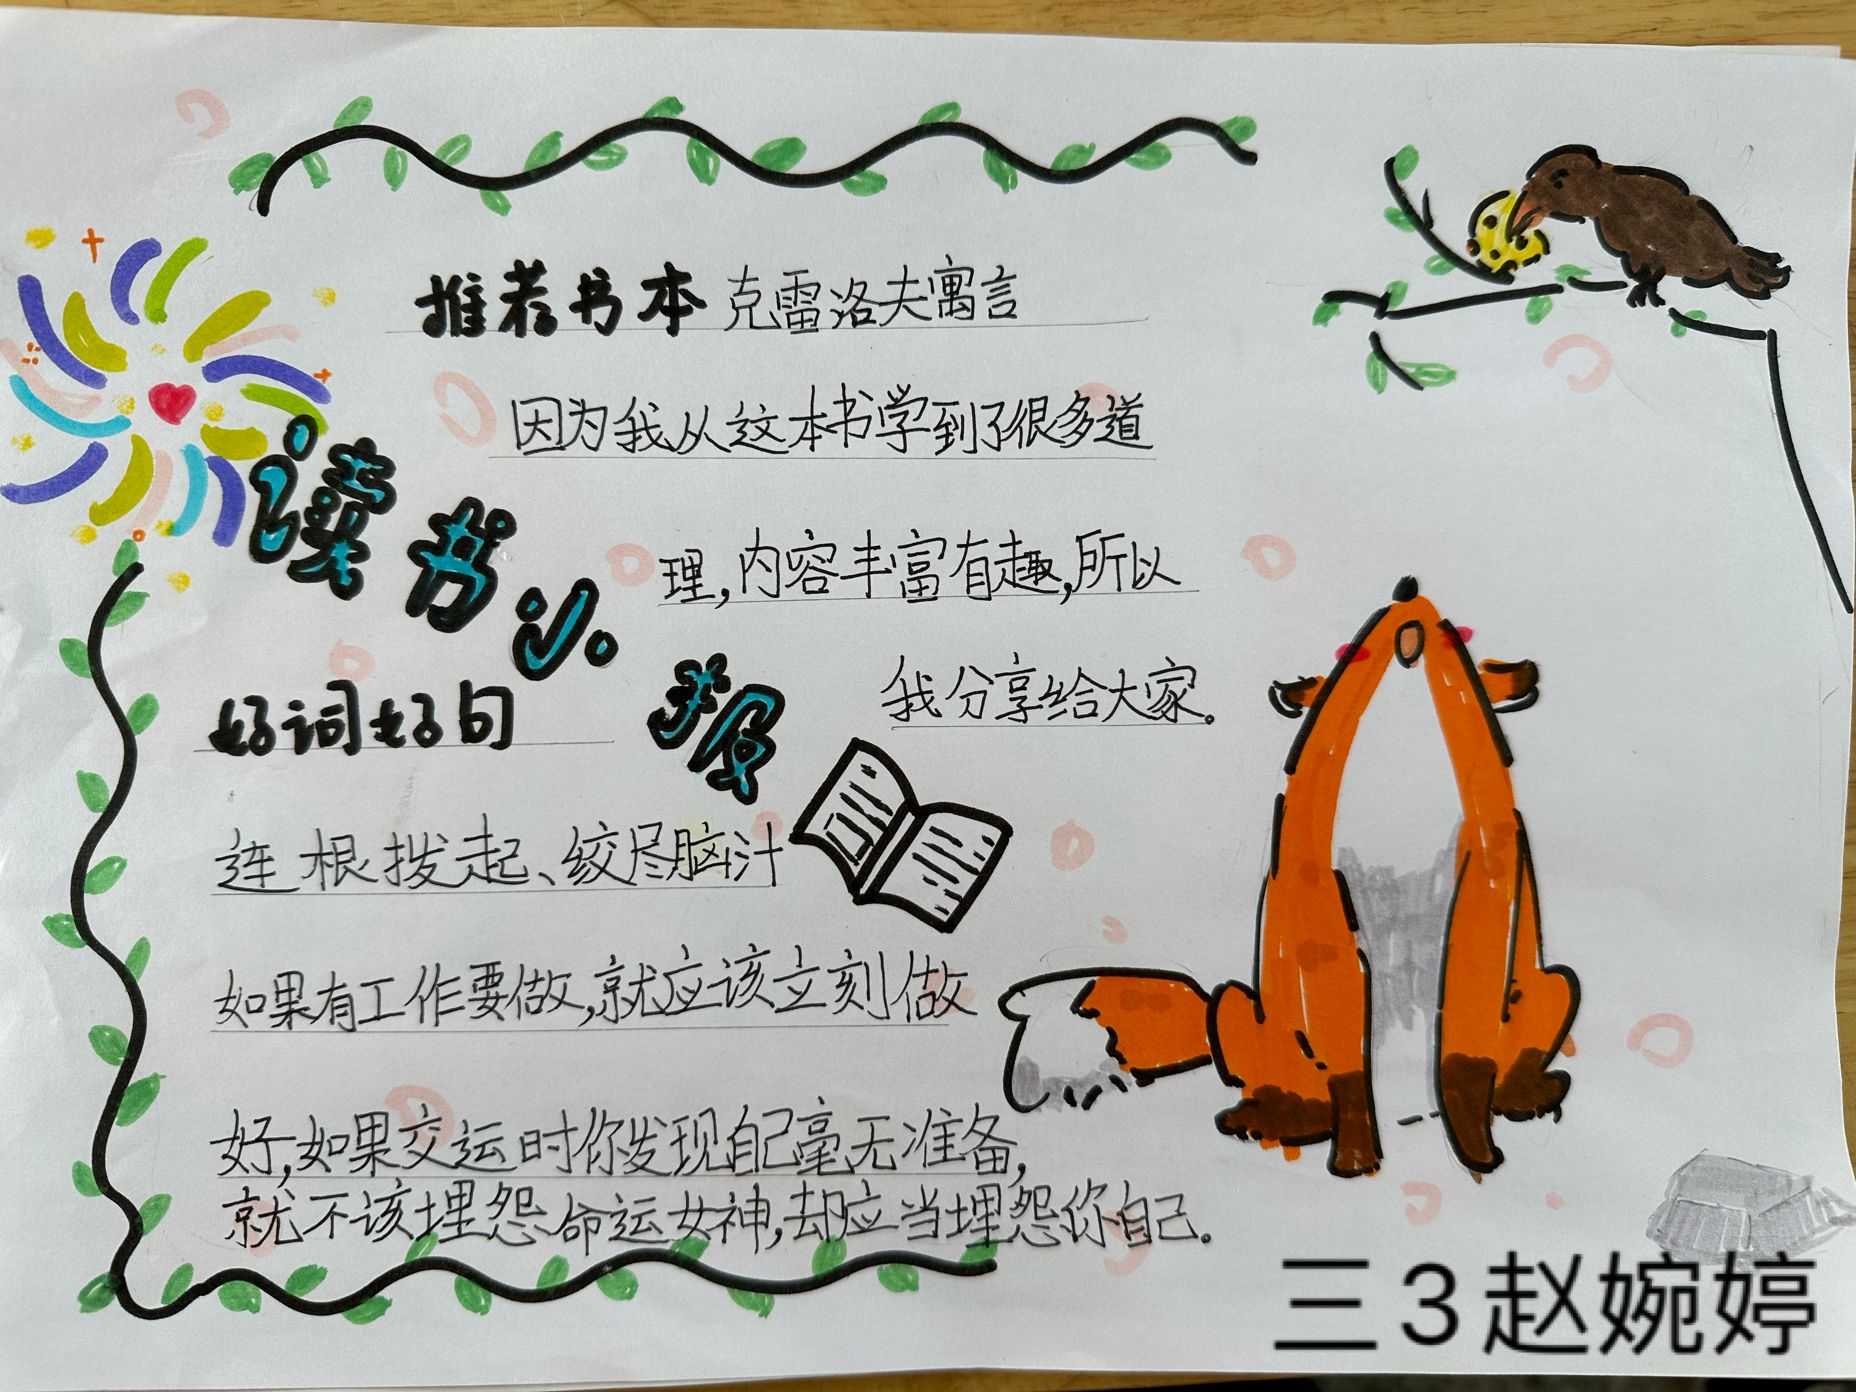 推荐书本 克雷洛夫寓言
因为我从这本书学到了很多道
理,内容丰富有趣,所以
我分享给大家。
读书小报
好词好句
连根拨起、绞尽脑汁
如果有工作要做,就应该立刻做
好,如果交运时你发现自己毫无准备,
就不该埋怨命运女神,却应当埋怨你自己。
三3赵婉婷